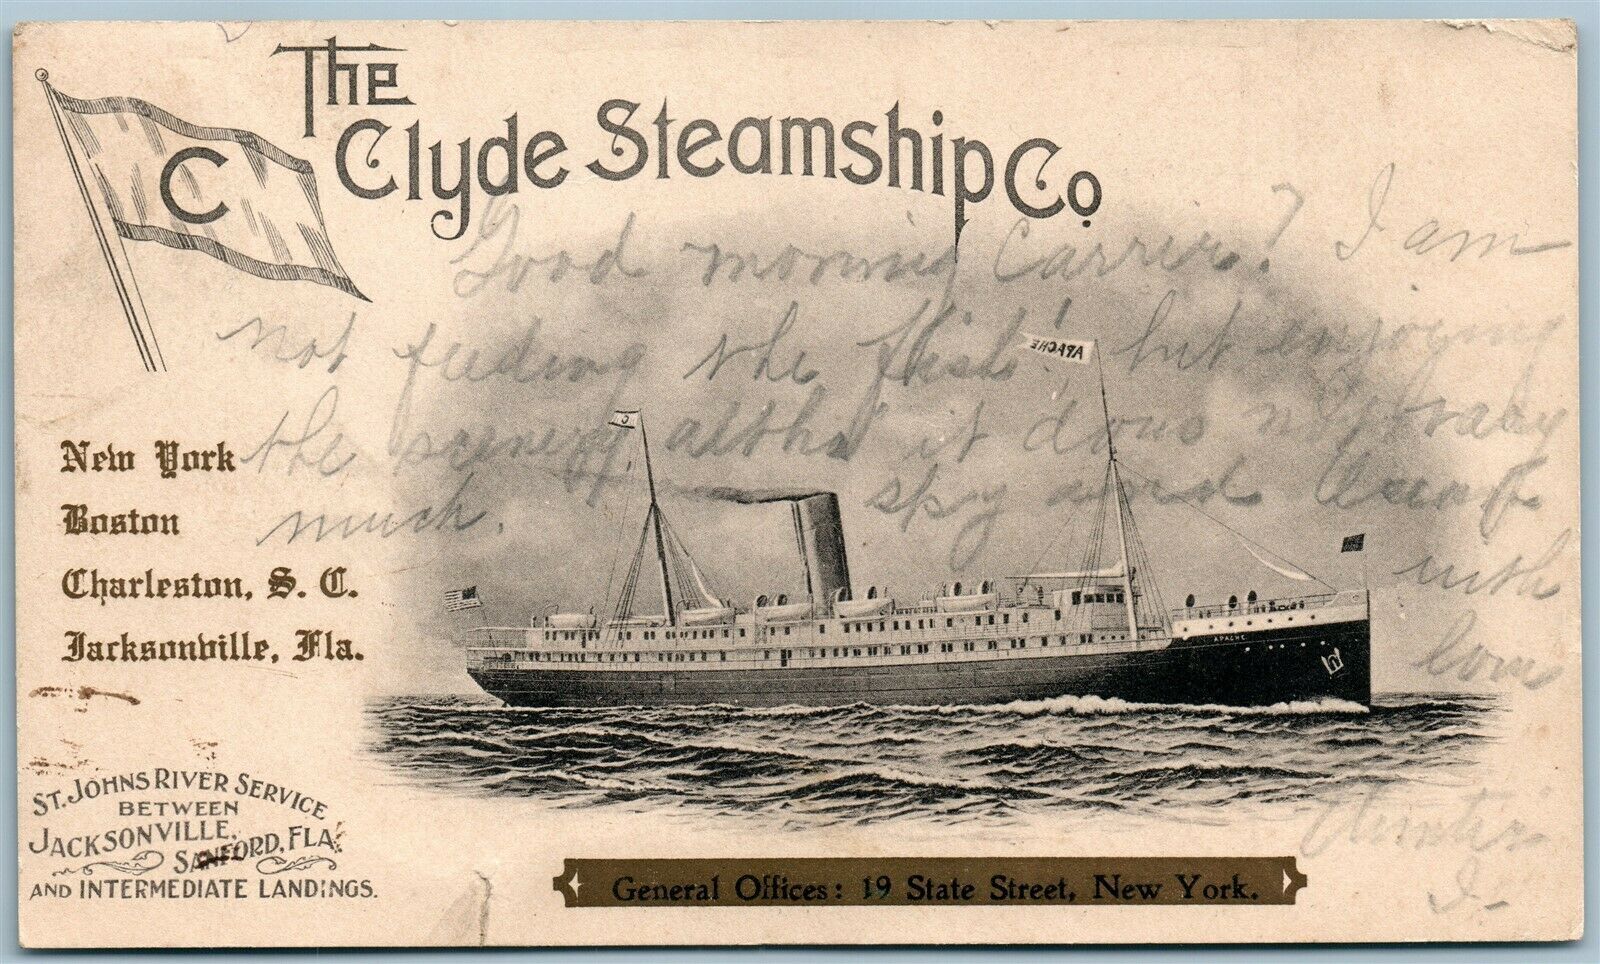 The
Clyde Steamship Co.
C
Good morning Carrier? I am
not feeding the fish! but enjoying
the scenery altho it does not vary
much.
spy and
with
love
APACHE
C
New York
Boston
Charleston, S. C.
Jacksonville, Fla.
APACHE
ST. JOHNS RIVER SERVICE
BETWEEN
JACKSONVILLE,
SANFORD, FLA.
AND INTERMEDIATE LANDINGS.
General Offices: 19 State Street, New York.